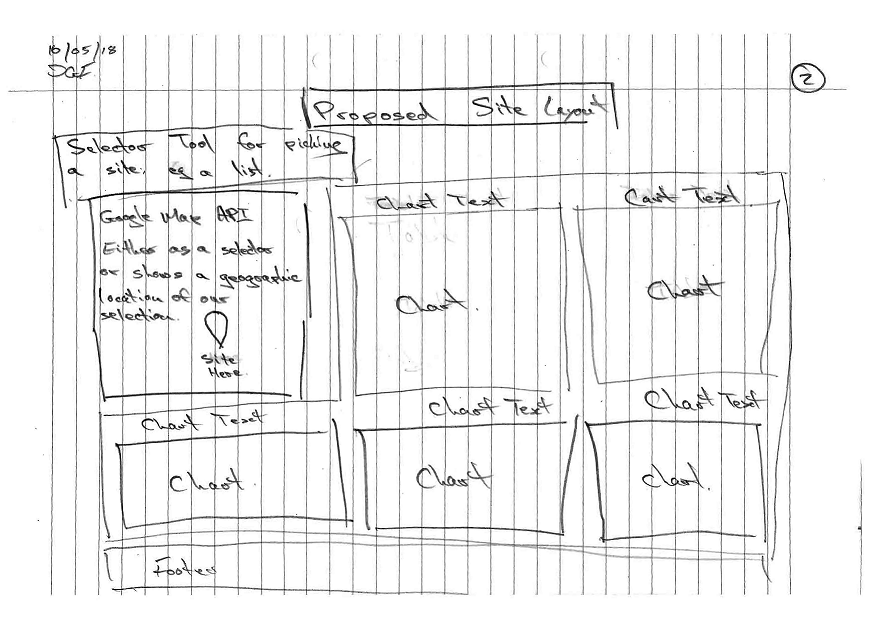 10/05/18
DGI
2
Proposed Site Layout
Selector Tool for picking
a site. eg a list.
Google Map API
Either as a selector
or shows a geographic
location of our
selection.
Site
Here
Chart Text
Chart.
Cart Text
Chart
Chart Text
Chart.
Chart Text
Chart
Chart Text
Chart.
Footer